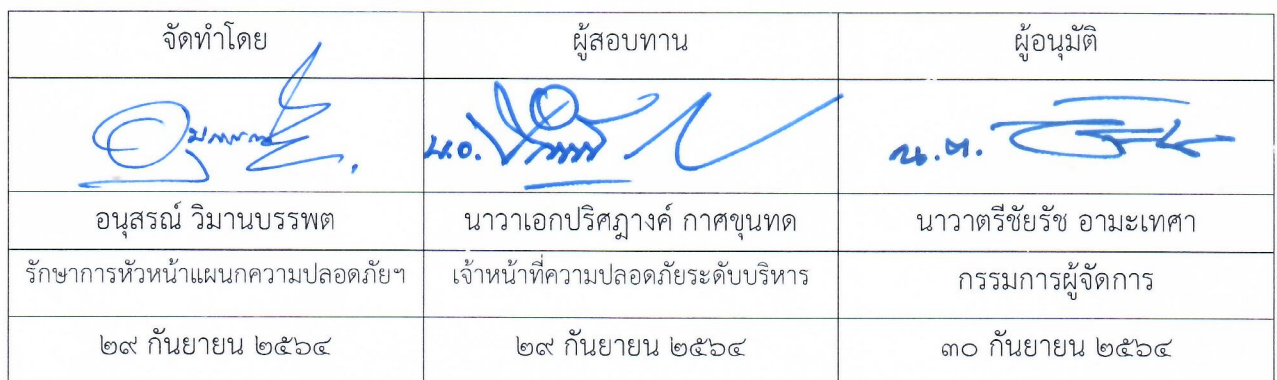 จัดทำโดย ผู้สอบทาน ผู้อนุมัติ
น.อ. น.ต.
อนุสรณ์ วิมานบรรพต นาวาเอกปริศฎางค์ กาศขุนทด นาวาตรีชัยรัช อามะเทศา
รักษาการหัวหน้าแผนกความปลอดภัยฯ เจ้าหน้าที่ความปลอดภัยระดับบริหาร กรรมการผู้จัดการ
๒๙ กันยายน ๒๕๖๔ ๒๙ กันยายน ๒๕๖๔ ๓๐ กันยายน ๒๕๖๔